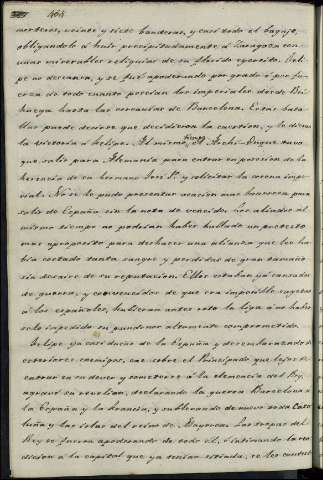 464
morteros, veinte y siete banderas, y casi todo el bagaje,
obligandolo á huir precipitadamente á Zaragoza con
unas miserables reliquias de su florido egercito. Feli-
pe no descansa, y se fué apoderando por grado ó por fu-
erza de todo cuanto poseian los imperiales desde Bri-
huega hasta las cercanias de Barcelona. Estas bata-
llas puede decirse que decidieron la cuestion, y le dieron
la victoria á Felipe. Al mismo tiempo el Archi-Duque tuvo
que salir para Alemania para entrar en posesion de la
herencia de su hermano José 1º. y solicitar la corona impe-
rial. No se le pudo presentar ocasion mas honrosa para
salir de España sin la nota de vencido. Los aliados al
mismo tiempo no podrian haber hallado un pretesto
mas aproposito para deshacer una alianza que les ha-
bia costado tanta sangre y perdidas de gran tamaño
sin desaire de su reputacion. Ellos estaban ya cansados
de guerra, y convencidos de que era imposible sugetar
á los españoles, hubieran antes roto la liga á no haber-
selo impedido su pundonor altamente comprometido.
Felipe ya casi dueño de la España y desembarazado de
exteriores enemigos, cae sobre el Principado que lejos de
entrar en su deber y someterse á la clemencia del Rey,
agravó su rebelion, declarando la guerra Barcelona á
la España y la Francia, y sublevando de nuevo toda Cata-
luña y las islas del reino de Mayorca. Las tropas del
Rey se fueron apoderando de todo él. Intimando la ren-
dicion á la capital que ya tenian sitiada, se les contest